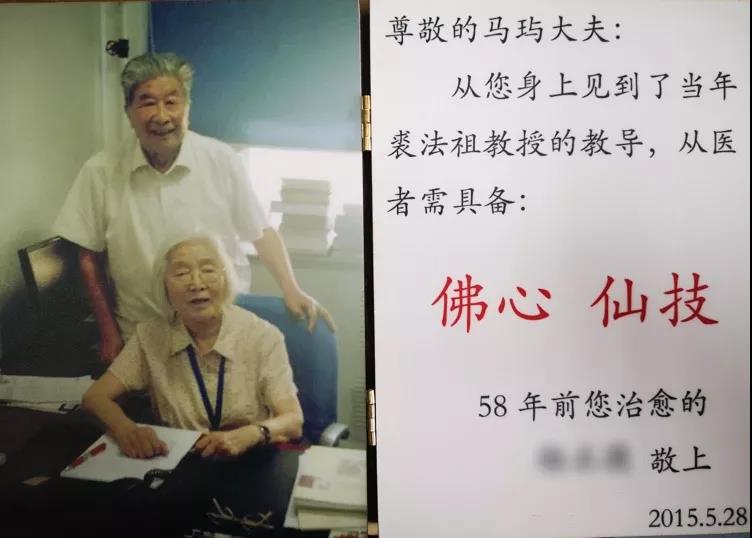 尊敬的马玙大夫：
从您身上见到了当年
裘法祖教授的教导，从医
者需具备：
佛心 仙技
58 年前您治愈的
敬上
2015.5.28